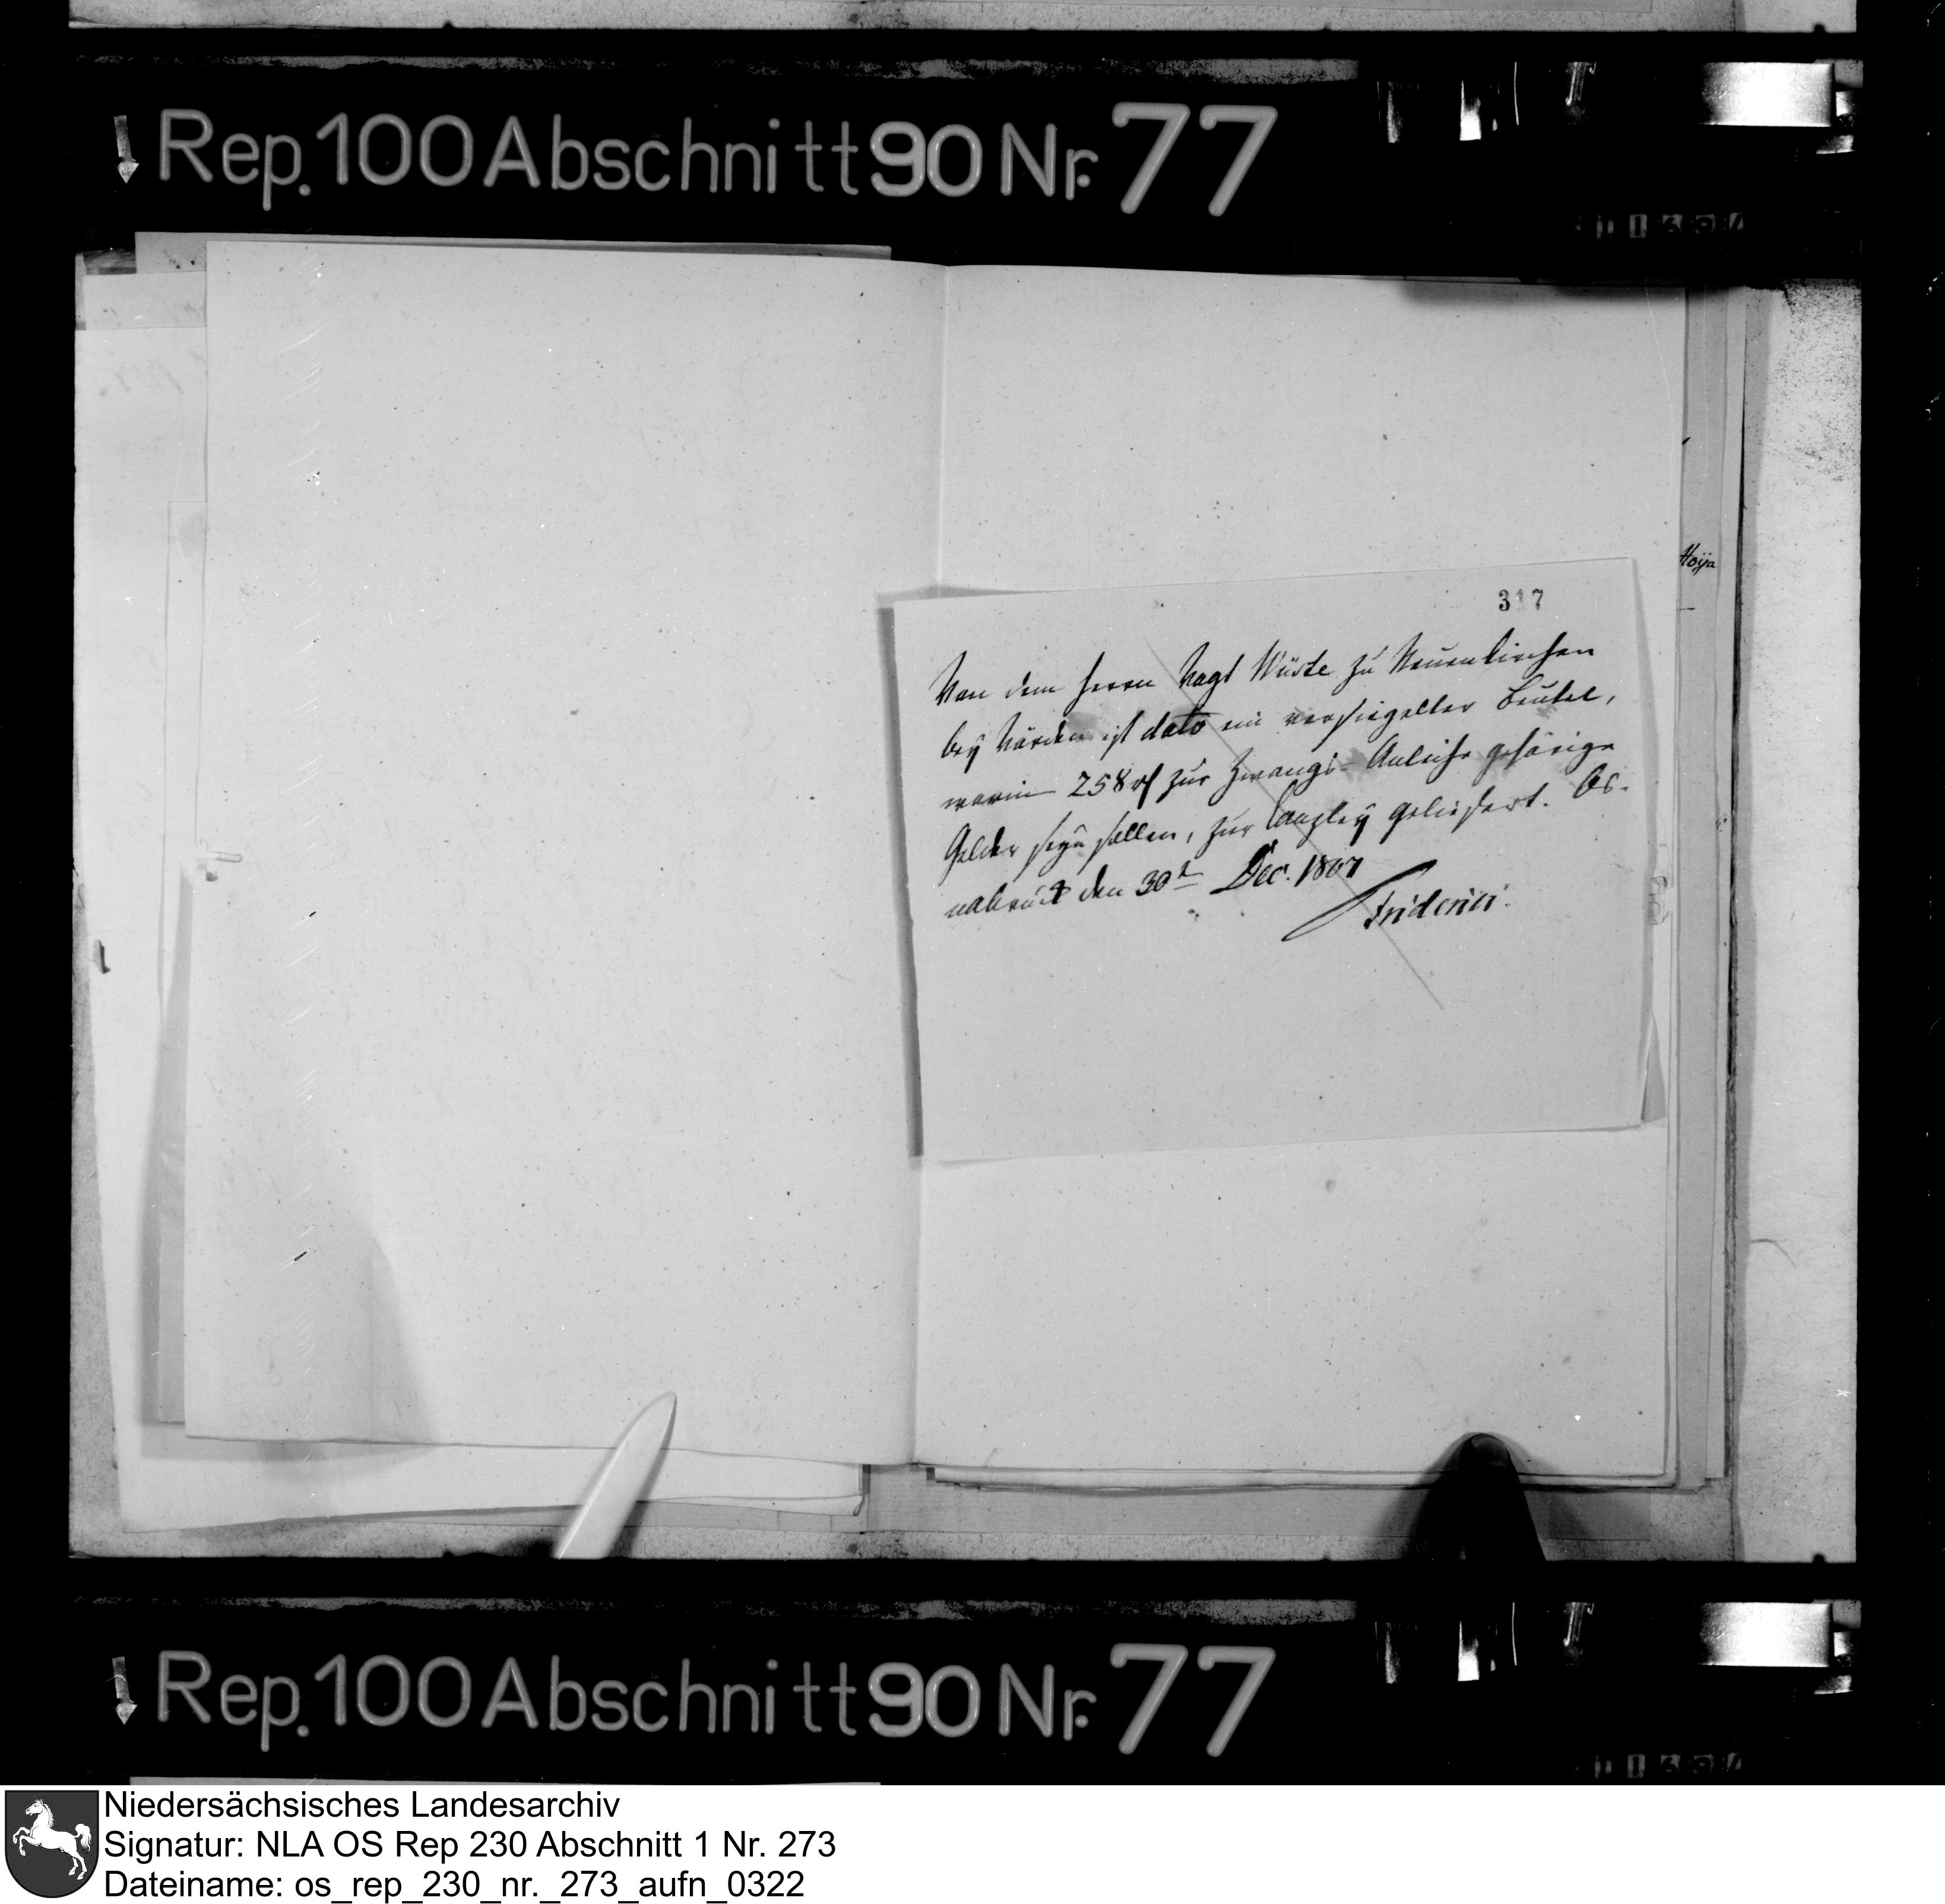 Rep. 100 Abschnitt 90 Nr. 77
Hoÿa
317
Von dem Herrn Vogt Wüste zu Neuenkirchen
beÿ Vörden ist dato ein versiegelter Beutel,
worin 258 rt zur Zwangs-Anleihe gehörige
Gelder seÿn sollen, zur Canzleÿ geliefert. Os-
nabrück den 30t Dec. 1807
Friderici.
Rep. 100 Abschnitt 90 Nr. 77
Niedersächsisches Landesarchiv
Signatur: NLA OS Rep 230 Abschnitt 1 Nr. 273
Dateiname: os_rep_230_nr._273_aufn_0322